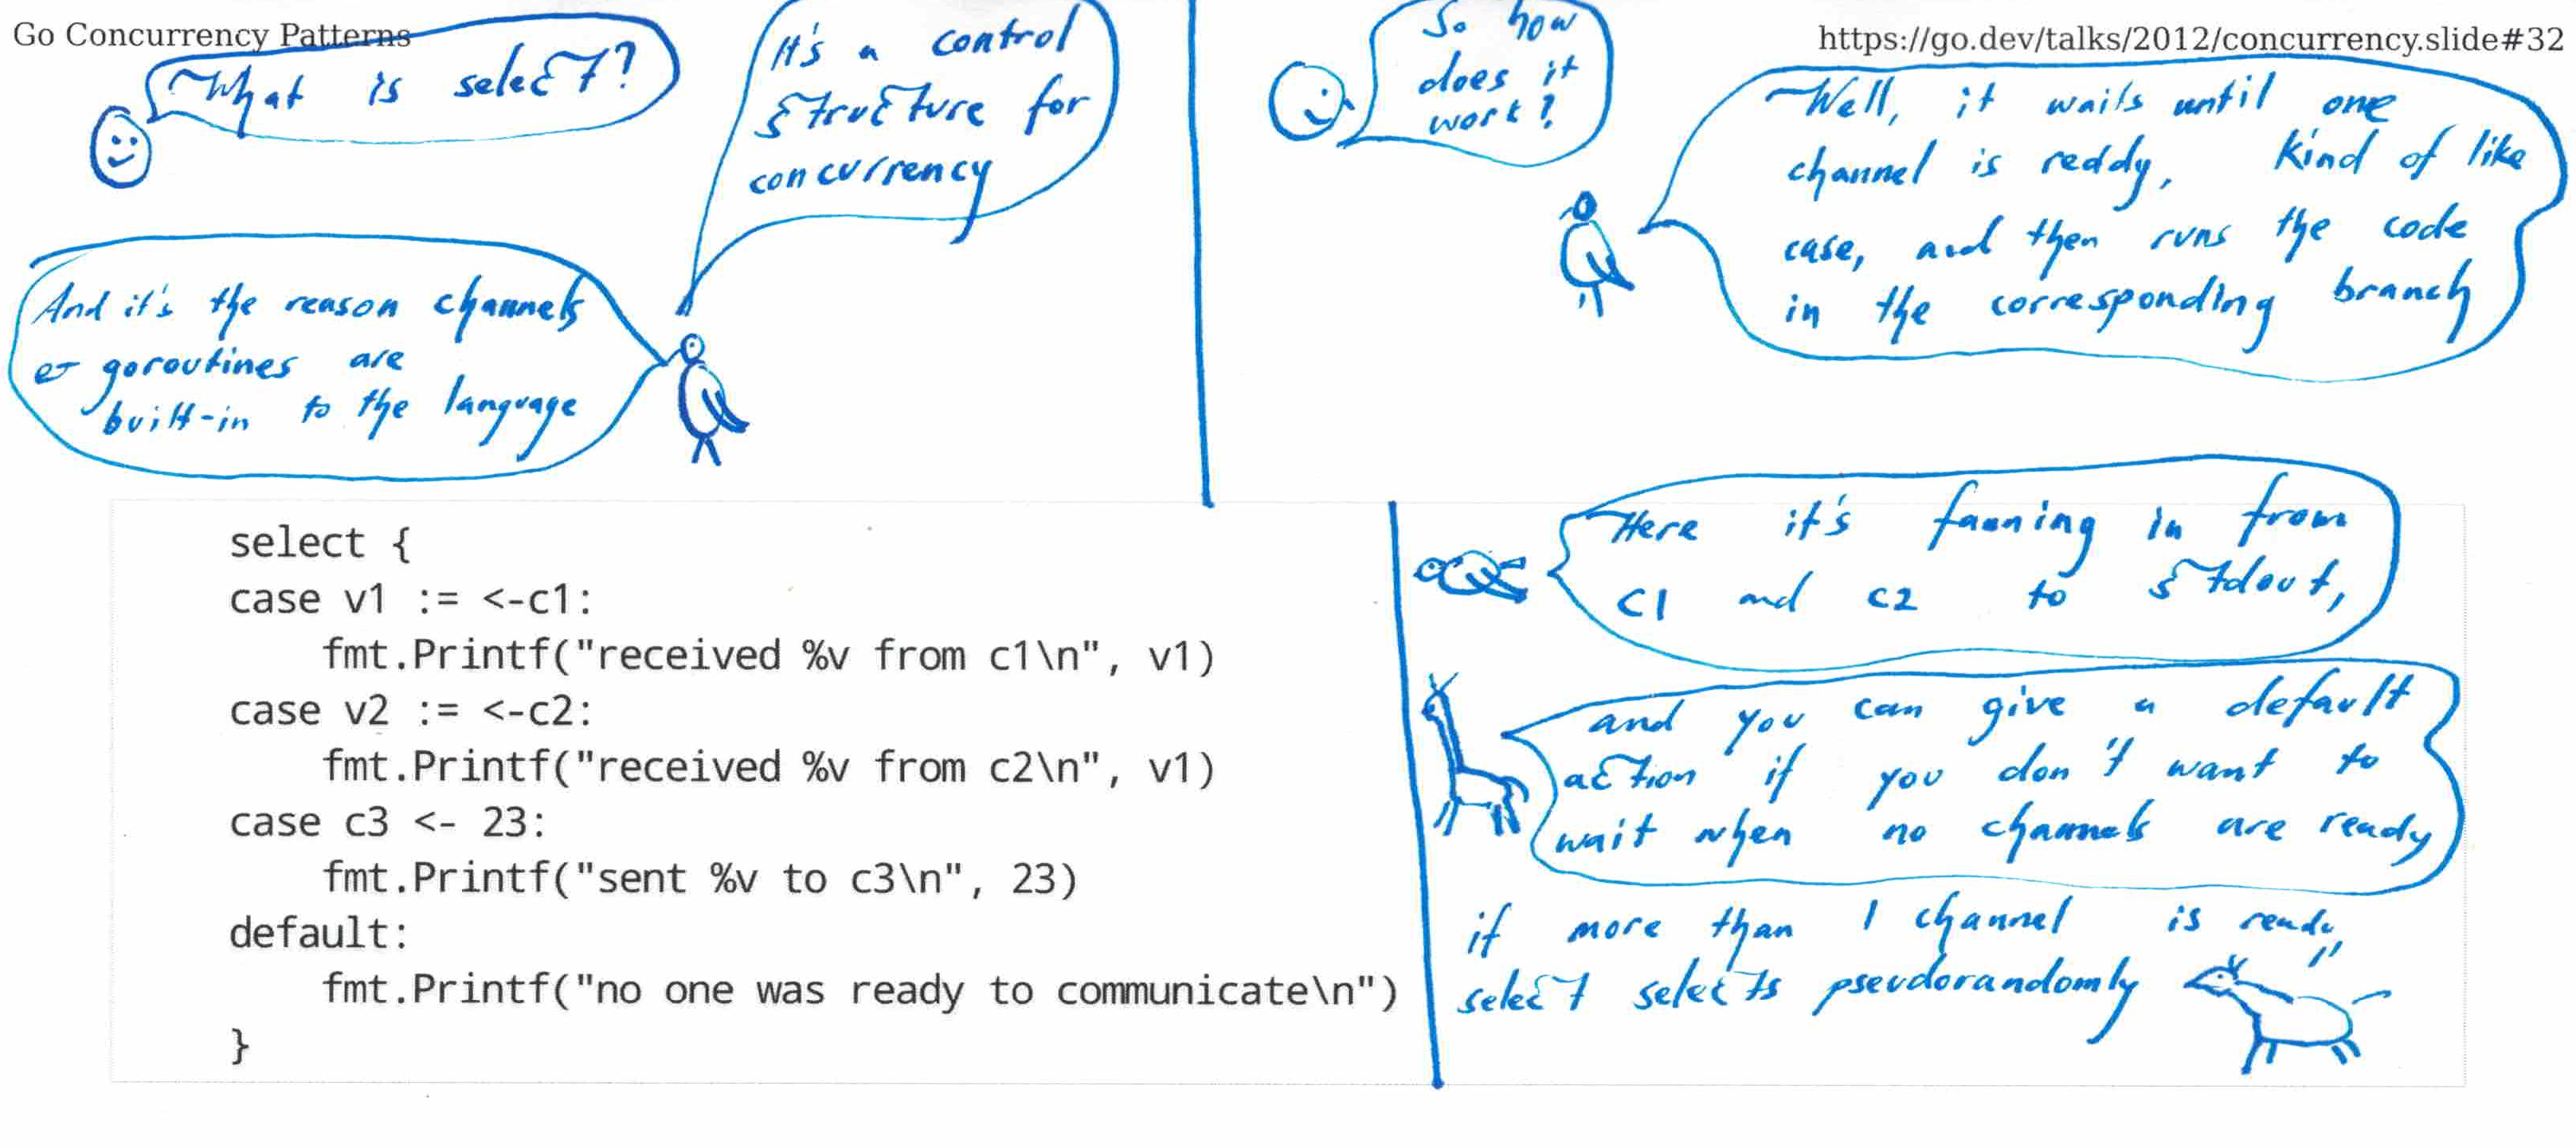 Go Concurrency Patterns
https://go.dev/talks/2012/concurrency.slide#32
What is select?
It's a control
structure for
concurrency
And it's the reason channels
& goroutines are
built-in to the language
So how
does it
work?
Well, it waits until one
channel is reddy, kind of like
case, and then runs the code
in the corresponding branch
select {
case v1 := <-c1:
    fmt.Printf("received %v from c1\n", v1)
case v2 := <-c2:
    fmt.Printf("received %v from c2\n", v1)
case c3 <- 23:
    fmt.Printf("sent %v to c3\n", 23)
default:
    fmt.Printf("no one was ready to communicate\n")
}
Here it's fanning in from
C1 and C2 to stdout,
and you can give a default
action if you don't want to
wait when no channels are ready
if more than 1 channel is ready,
select selects pseudorandomly